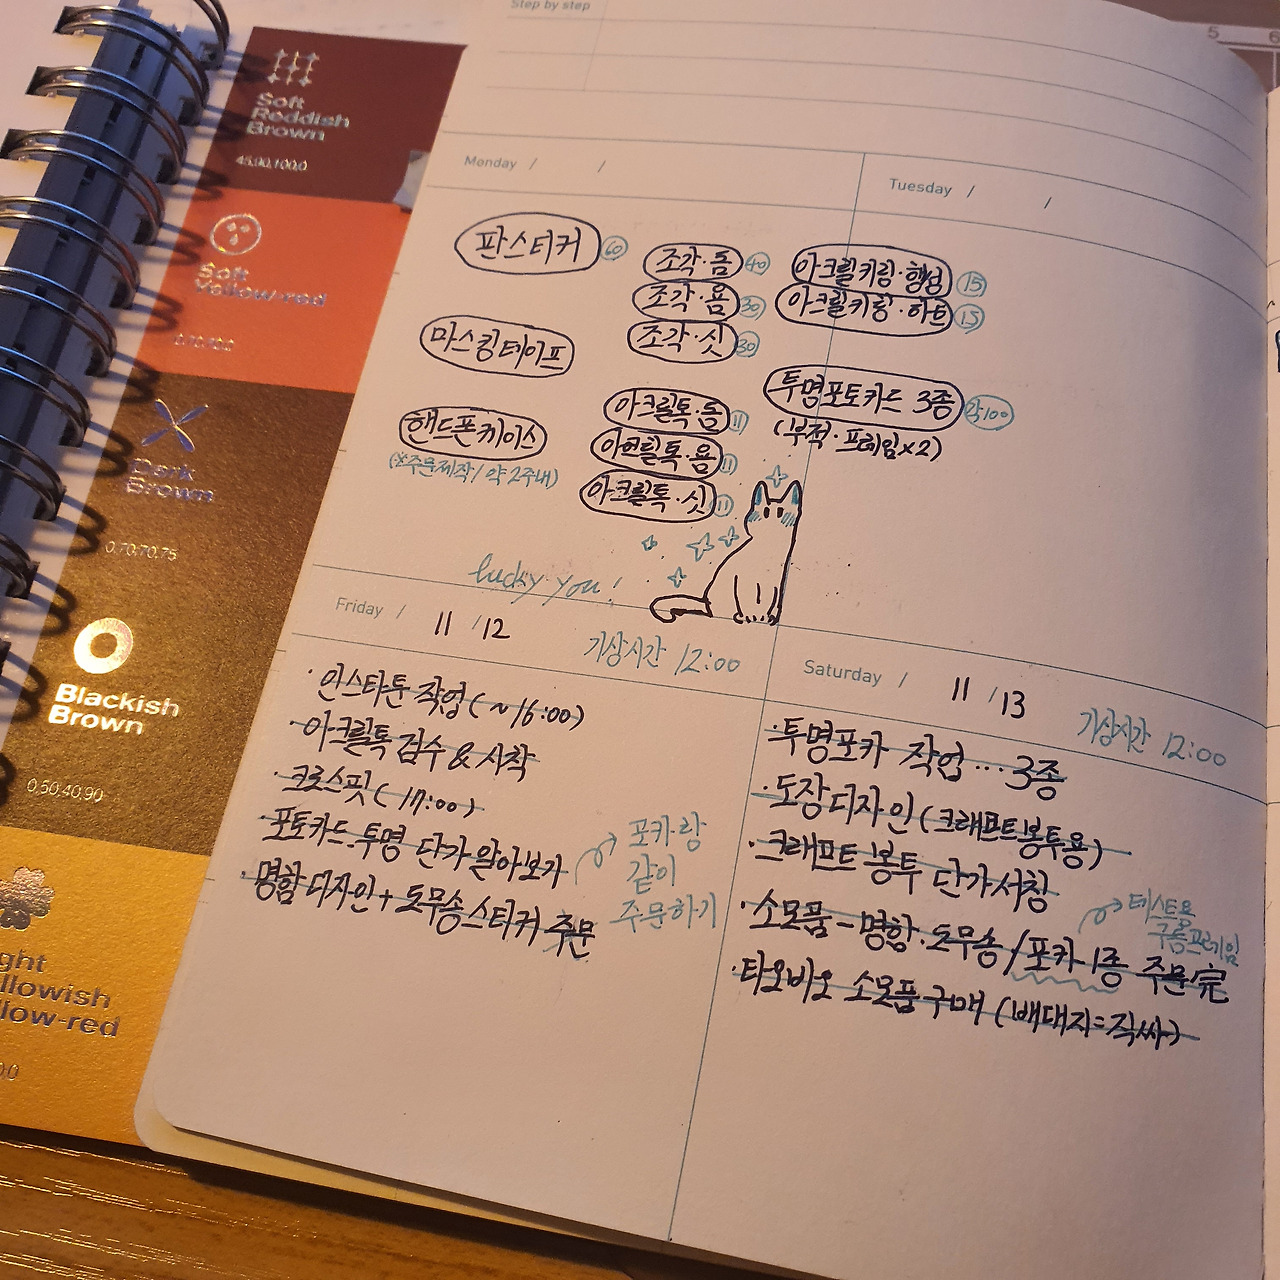 Step by step
5
6
Soft
Reddish
Brown
45,90,100,0
Soft
Yellow-red
0,70,70,0
Dark
Brown
0,70,70,75
Blackish
Brown
0,50,40,90
ght
llowish
llow-red
Monday / /
판스티커 60
마스킹테이프
핸드폰케이스
(※주문제작/약 2주내)
조각·돔 40
조각·용 30
조각·싯 30
아크릴톡·돔 11
아크릴톡·용 11
아크릴톡·싯 11
lucky you!
Tuesday / /
아크릴키링·행성 15
아크릴키링·하트 15
투명포토카드 3종 각100
(부적·프레임x2)
Friday / 11 /12
기상시간 12:00
·인스타툰 작업(~16:00)
·아크릴톡 검수 & 시작
·크로스핏(17:00)
·포토카드·투명 단가 알아보기
·명함 디자인+도무송스티커 주문
포카랑
같이
주문하기
Saturday / 11 /13
기상시간 12:00
·투명포카 작업…3종
·도장디자인(크래프트봉투용)
·크래프트 봉투 단가서칭
·소모품-명함·도무송/포카1종 주문完
테스트용
구름프레임
·타오바오 소모품구매(배대지=직싸)